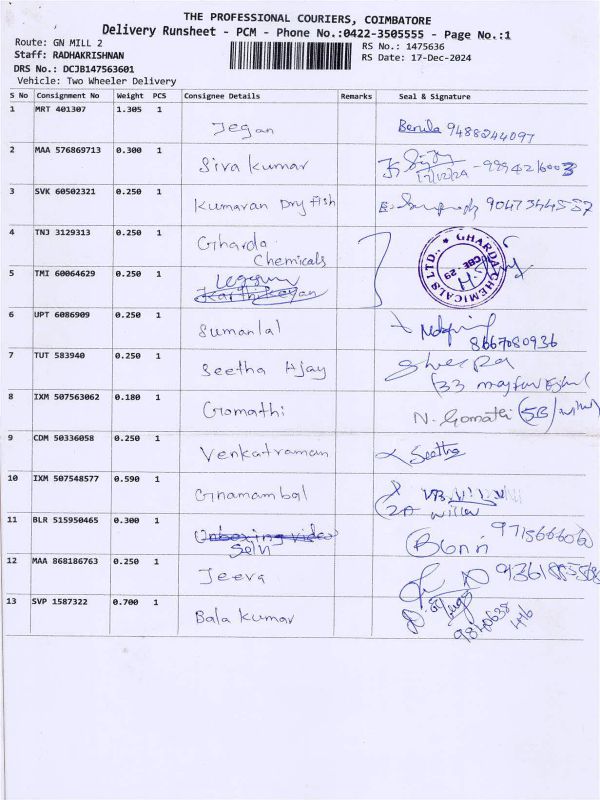 THE PROFESSIONAL COURIERS, COIMBATORE
Delivery Runsheet - PCM - Phone No.:0422-3505555 - Page No.:1
Route: GN MILL 2
RS No.: 1475636
Staff: RADHAKRISHNAN
RS Date: 17-Dec-2024
DRS No.: DCJB147563601
Vehicle: Two Wheeler Delivery
S No Consignment No Weight PCS Consignee Details Remarks Seal & Signature
1 MRT 401307 1.305 1
Jegan Benila 9488244097
2 MAA 576869713 0.300 1
Siva Kumar
17/12/24
3 SVK 60502321 0.250 1
Kumaran Dry fish
4 TNJ 3129313 0.250 1
Gharda
Chemicals
GHARDA CHEMICALS LTD.,
CBE-29
5 TMI 60064629 0.250 1
Karthikeyan
6 UPT 6086909 0.250 1
Sumanlal
8667080936
7 TUT 583940 0.250 1
Seetha Ajay
8 IXM 507563062 0.180 1
Gomathi N. Gomathi
9 CDM 50336058 0.250 1
Venkatraman Seetha
10 IXM 507548577 0.590 1
Gnamambal
2A willow
11 BLR 515950465 0.300 1
Unboxing video
Selvi
12 MAA 868186763 0.250 1
Jeeva
13 SVP 1587322 0.700 1
Bala Kumar